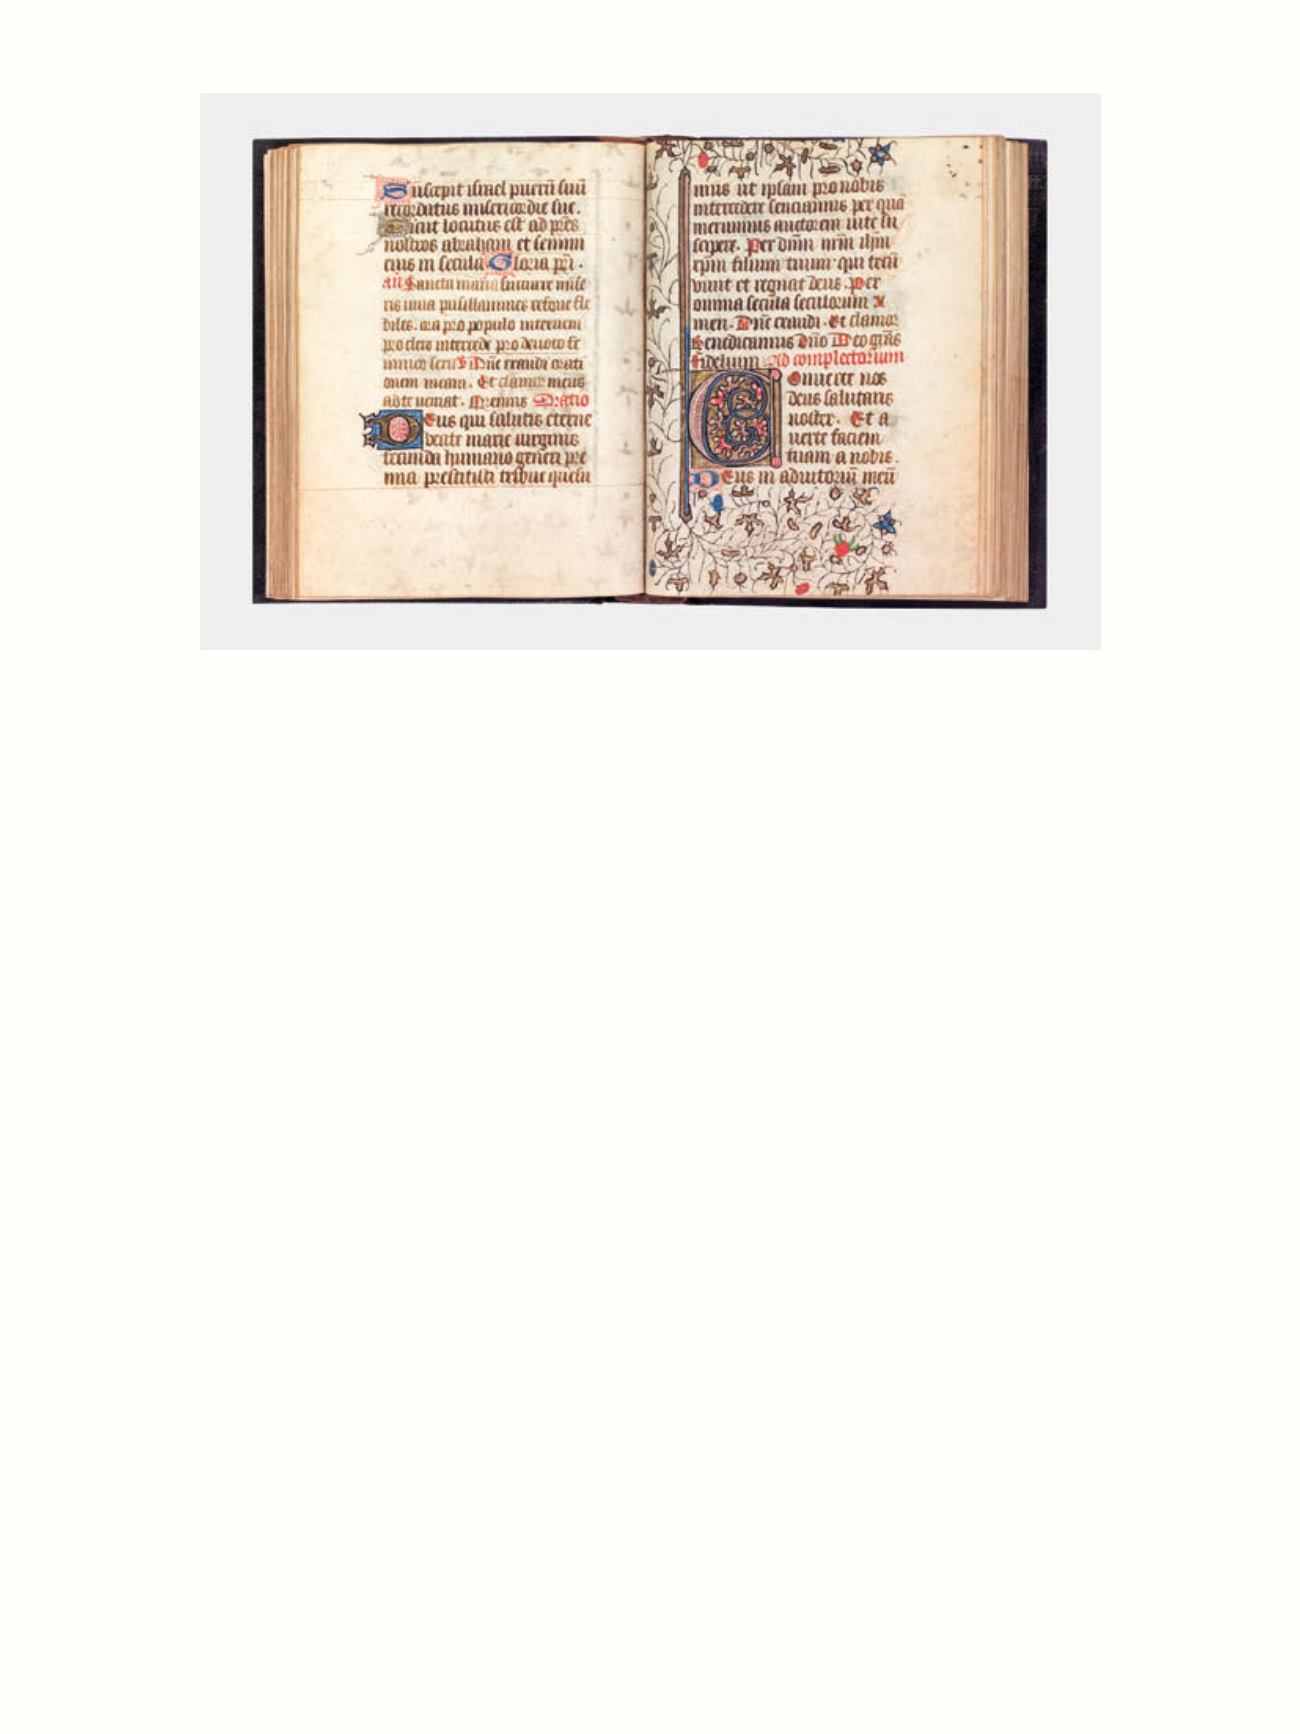 Suscepit israel puerū suū
recordatus misericordie sue.
Sicut locutus est ad pr̄es
nostros abraham et semini
eius in secula Gloria pr̄i.
añ Sancta maria succurre mise
ris iuua pusillanimes refoue fle
biles. ora pro populo interueni
pro clero intercede pro deuoto fe
mineo sexu Dn̄e exaudi orati
onem meam. Et clamor meus
ad te ueniat. Oremus Oratio
Deus qui salutis eterne
beate marie uirginis
fecunda humano generi pre
mia prestitisti tribue quesu
mus ut ipsam pro nobis
intercedere senciamus per quā
meruimus auctorem uite su
scipere. Per dn̄m nr̄m ih̄m
xp̄m filium tuum qui tecū
viuit et regnat deus. Per
omnia secula seculorum A
men. Dn̄e exaudi. Et clamor
Benedicamus dn̄o Deo gr̄as
fidelium Ad completorium
Conuerte nos
deus salutaris
noster. Et a
uerte faciem
tuam a nobis.
Deus in adiutoriū meū